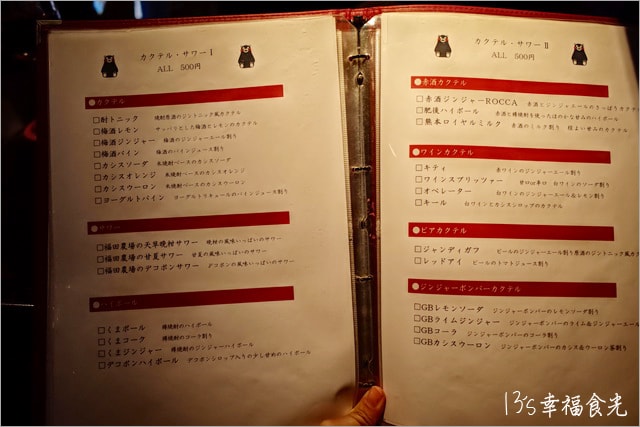 カクテル・サワー I
ALL 500円
●カクテル
□酎トニック 焼酎原酒のジントニック風カクテル
□梅酒レモン サッパリとした梅酒とレモンのカクテル
□梅酒ジンジャー 梅酒のジンジャーエール割り
□梅酒パイン 梅酒のパインジュース割り
□カシスソーダ 米焼酎ベースのカシスソーダ
□カシスオレンジ 米焼酎ベースのカシスオレンジ
□カシスウーロン 米焼酎ベースのカシスウーロン
□ヨーグルトパイン ヨーグルトリキュールのパインジュース割り
●サワー
□福田農場の天草晩柑サワー 晩柑の風味いっぱいのサワー
□福田農場の甘夏サワー 甘夏の風味いっぱいのサワー
□福田農場のデコポンサワー デコポンの風味いっぱいのサワー
●ハイボール
□くまボール 樽焼酎のハイボール
□くまコーク 樽焼酎のコーラ割り
□くまジンジャー 樽焼酎のジンジャーハイボール
□デコポンハイボール デコポンシロップ入りの少し甘めのハイボール
カクテル・サワー II
ALL 500円
●赤酒カクテル
□赤酒ジンジャーROCCA 赤酒とジンジャーエールのさっぱりカクテル
□肥後ハイボール 赤酒と樽焼酎を使ったほのかな甘みのハイボール
□熊本ロイヤルミルク 赤酒のミルク割り 程よい甘みのカクテル
●ワインカクテル
□キティ 赤ワインのジンジャーエール割り
□ワインスプリッツァー 甘口or辛口 白ワインのソーダ割り
□オペレーター 白ワインのジンジャーエール&レモン割り
□キール 白ワインとカシスシロップのカクテル
●ビアカクテル
□ジャンディガフ ビールのジンジャーエール割り原酒のジントニック風カ
□レッドアイ ビールのトマトジュース割り
●ジンジャーボンバーカクテル
□GBレモンソーダ ジンジャーボンバーのレモンソーダ割り
□GBライムジンジャー ジンジャーボンバーのライム&ジンジャーエール
□GBコーラ ジンジャーボンバーのコーラ割り
□GBカシスウーロン ジンジャーボンバーのカシス&ウーロン茶割り
13's幸福食光